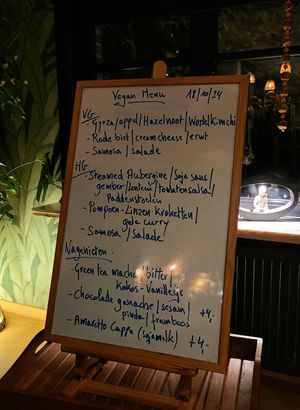 Vegan Menu 18/10/24
VG
- Gyoza/appel/Hazelnoot/Wortelkimchi
- Rode biet/creamcheese/erwt
- Samosa/Salade
HG
- Steamed Aubergine/Soja saus/
gember/lenteui/tomatensalsa/
Paddenstoelen
- Pompoen-Linzen Kroketten/
gele curry
- Samosa/Salade
Nagerechten.
- Green tea macha/bitter/
Kokos-Vanilleijs
- chocolade ganache/sesam/ +4,-
pinda/framboos
- Amaretto Cappu (Sojamelk) +4,-